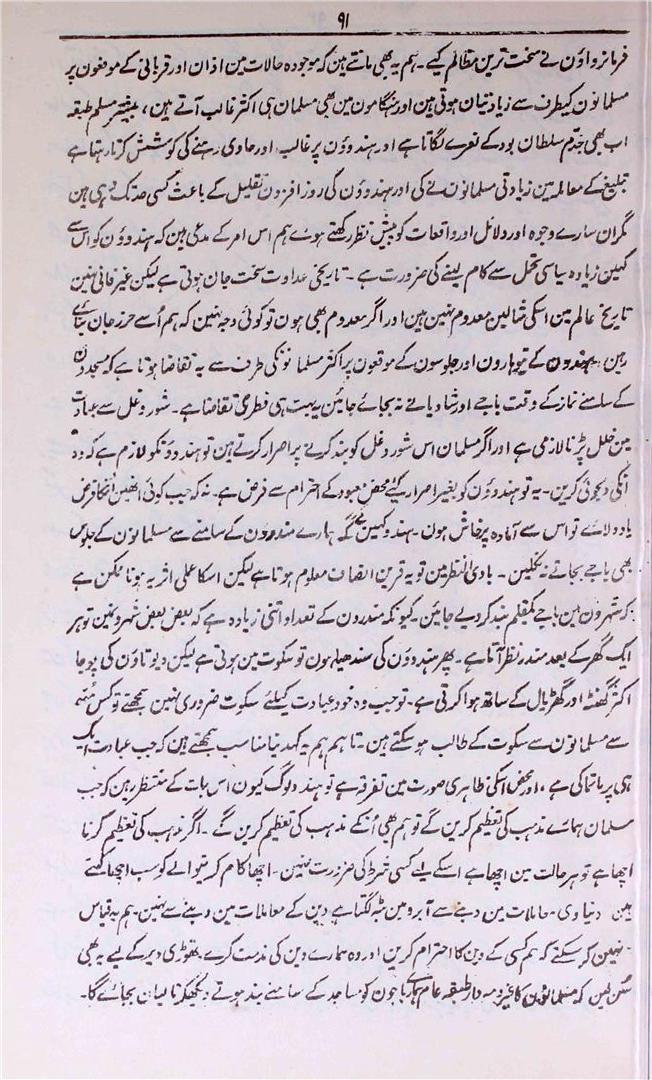 ۹۱
فرمانرواؤن نے سخت ترین مظالم کیے۔ ہم یہ بھی مانتے ہین کہ موجودہ حالات مین اذان اور قربانی کے موقعون پر
مسلمانون کیطرف سے زیادتیان ہوتی ہین اور ہنگامون مین بھی مسلمان ہی اکثر غالب آتے ہین، بیشتر مسلم طبقہ
اب بھی جدّم سلطان بود کے نعرے لگاتا ہے اور ہندوؤن پر غالب اور حاوی رہنے کی کوشش کرتا رہتا ہے
تبلیغ کے معاملہ مین زیادتی مسلمانون نے کی اور ہندوؤن کی روز افزون تقلیل کے باعث کسی حد تک وہی ہین
مگر ان سارے وجوہ اور دلائل اور واقعات کو پیش نظر رکھتے ہوئے ہم اس امر کے مدعی ہین کہ ہندوؤن کو اس سے
کہین زیادہ سیاسی تحمل سے کام لینے کی ضرورت ہے۔ تاریخی عداوت سخت جان ہوتی ہے لیکن غیر فانی نہین
تاریخ عالم مین اسکی مثالین معدوم نہین ہین اور اگر معدوم بھی ہون تو کوئی وجہ نہین کہ ہم اُسے حرز جان بنائے
رہین، ہندوؤن کے تیوہارون اور جلوسون کے موقعون پر اکثر مسلمانونکی طرف سے یہ تقاضا ہوتا ہے کہ مسجدون
کے سامنے نماز کے وقت باجے اور شادیانے نہ بجائے جائین یہ بہت ہی فطری تقاضا ہے۔ شور و غل سے عبادت
مین خلل پڑنا لازمی ہے اور اگر مسلمان اس شور و غل کو بند کرنے پر اصرار کرتے ہین تو ہندوؤنکو لازم ہے کہ وہ
انکی دلجوئی کرین۔ یہ تو ہندوؤن کو بغیر اصرار کیے محض معبود کے احترام سے فرض ہے۔ نہ کہ جب کوئی انھین انکا فرض
یاد دلائے تو اس سے آمادہ پرخاش ہون۔ ہندو کہین گے کہ ہمارے مندرون کے سامنے سے مسلمانون کے جلوس
بھی باجے بجاتے نہ نکلین۔ بادی النظر مین تو یہ قرین انصاف معلوم ہوتا ہے لیکن اسکا عملی اثر یہ ہونا ممکن ہے
کہ شہرون مین باجے یکقلم بند کر دیے جائین۔ کیونکہ مندرون کے تعداد اتنی زیادہ ہے کہ بعض بعض شہرونمین تو ہر
ایک گھر کے بعد مندر نظر آتا ہے۔ پھر ہندوؤن کی سندھیا ہون تو سکوت مین ہوتی ہے لیکن دیوتاؤن کی پوجا
اکثر گھنٹہ اور گھڑیال کے ساتھ ہوا کرتی ہے۔ تو جب وہ خود عبادت کیلئے سکوت ضروری نہین سمجھتے تو کس مُنہ
سے مسلمانون سے سکوت کے طالب ہو سکتے ہین۔ تاہم ہم یہ کہدینا مناسب سمجھتے ہین کہ جب عبادت ایک
ہی پرماتما کی ہے، اور محض اسکی ظاہری صورت مین تفرقہ ہے تو ہندو لوگ کیون اس بات کے منتظر رہین کہ جب
مسلمان ہمارے مذہب کی تعظیم کرین گے تو ہم بھی اُنکے مذہب کی تعظیم کرین گے۔ اگر مذہب کی تعظیم کرنا
اچھا ہے تو ہر حالت مین اچھا ہے اسکے لیے کسی شرط کی ضرورت نہین۔ اچھا کام کرنیوالے کو سب اچھا کہتے
ہین دنیاوی معاملات مین دبنے سے آبرو مین بٹہ لگتا ہے دین کے معاملات مین دبنے سے نہین۔ ہم یہ قیاس
نہین کر سکتے کہ ہم کسی کے دین کا احترام کرین اور وہ ہمارے دین کی مذمت کرے۔ تھوڑی دیر کے لیے یہ بھی
سُن لین کہ مسلمانون کا غیر ذمہ دار طبقہ عام ہمارے باجون کو مساجد کے سامنے بند ہوتے دیکھکر تالیان بجائے گا۔